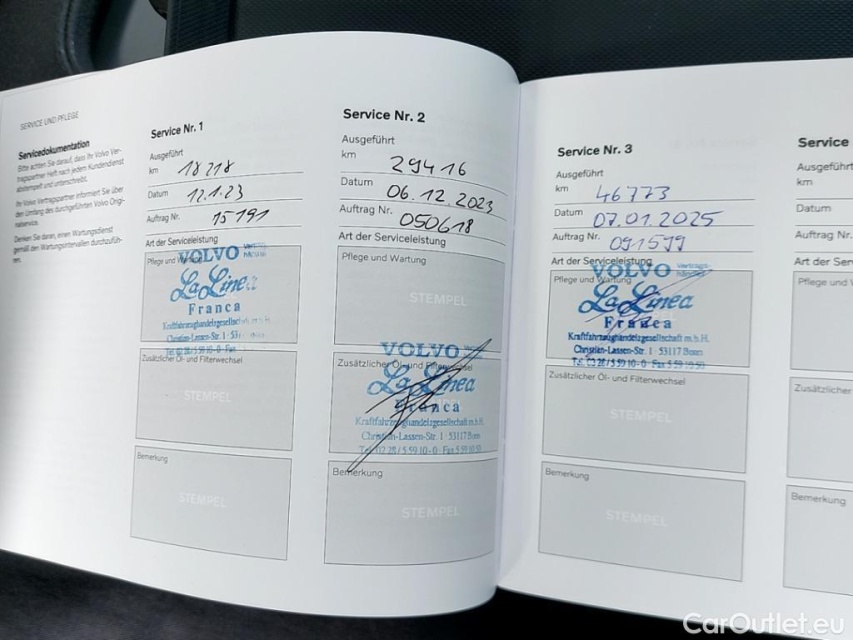 SERVICE UND PFLEGE
Servicedokumentation
Bitte achten Sie darauf, dass Ihr Volvo Ver-
tragspartner Heft nach jedem Kundendienst
abstempelt und unterschreibt.
Ihr Volvo Vertragspartner informiert Sie über
den Umfang des durchgeführten Volvo Origi-
nalservice.
Denken Sie daran, einen Wartungsdienst
gemäß den Wartungsintervallen durchzufüh-
ren.
Service Nr. 1
Ausgeführt
km 18218
Datum 12.1.23
Auftrag Nr. 15191
Art der Serviceleistung
Pflege und Wartung
VOLVO
La Linea
Franca
Kraftfahrzeughandelsgesellschaft
Christian-Lassen-Str. 1
Tel. 02 28/5 59 10-0 · Fax
Zusätzlicher Öl- und Filterwechsel
STEMPEL
Bemerkung
STEMPEL
Service Nr. 2
Ausgeführt
km 29416
Datum 06.12.2023
Auftrag Nr. 050618
Art der Serviceleistung
Pflege und Wartung
STEMPEL
Zusätzlicher Öl- und Filterwechsel
VOLVO
La Linea
Franca
Kraftfahrzeughandelsgesellschaft m.b.H.
Christian-Lassen-Str. 1 · 53117 Bonn
Tel. 02 28/5 59 10-0 · Fax 5 59 10 50
Bemerkung
STEMPEL
Service Nr. 3
Ausgeführt
km 46773
Datum 07.01.2025
Auftrag Nr. 091599
Art der Serviceleistung
Pflege und Wartung
VOLVO
La Linea
Franca
Kraftfahrzeughandelsgesellschaft m.b.H.
Christian-Lassen-Str. 1 · 53117 Bonn
Tel. 02 28/5 59 10-0 · Fax 5 59 10 50
Zusätzlicher Öl- und Filterwechsel
STEMPEL
Bemerkung
STEMPEL
Service
Ausgeführt
km
Datum
Auftrag Nr.
Art der Ser
Pflege und
Zusätzlicher
Bemerkung
CarOutlet.eu